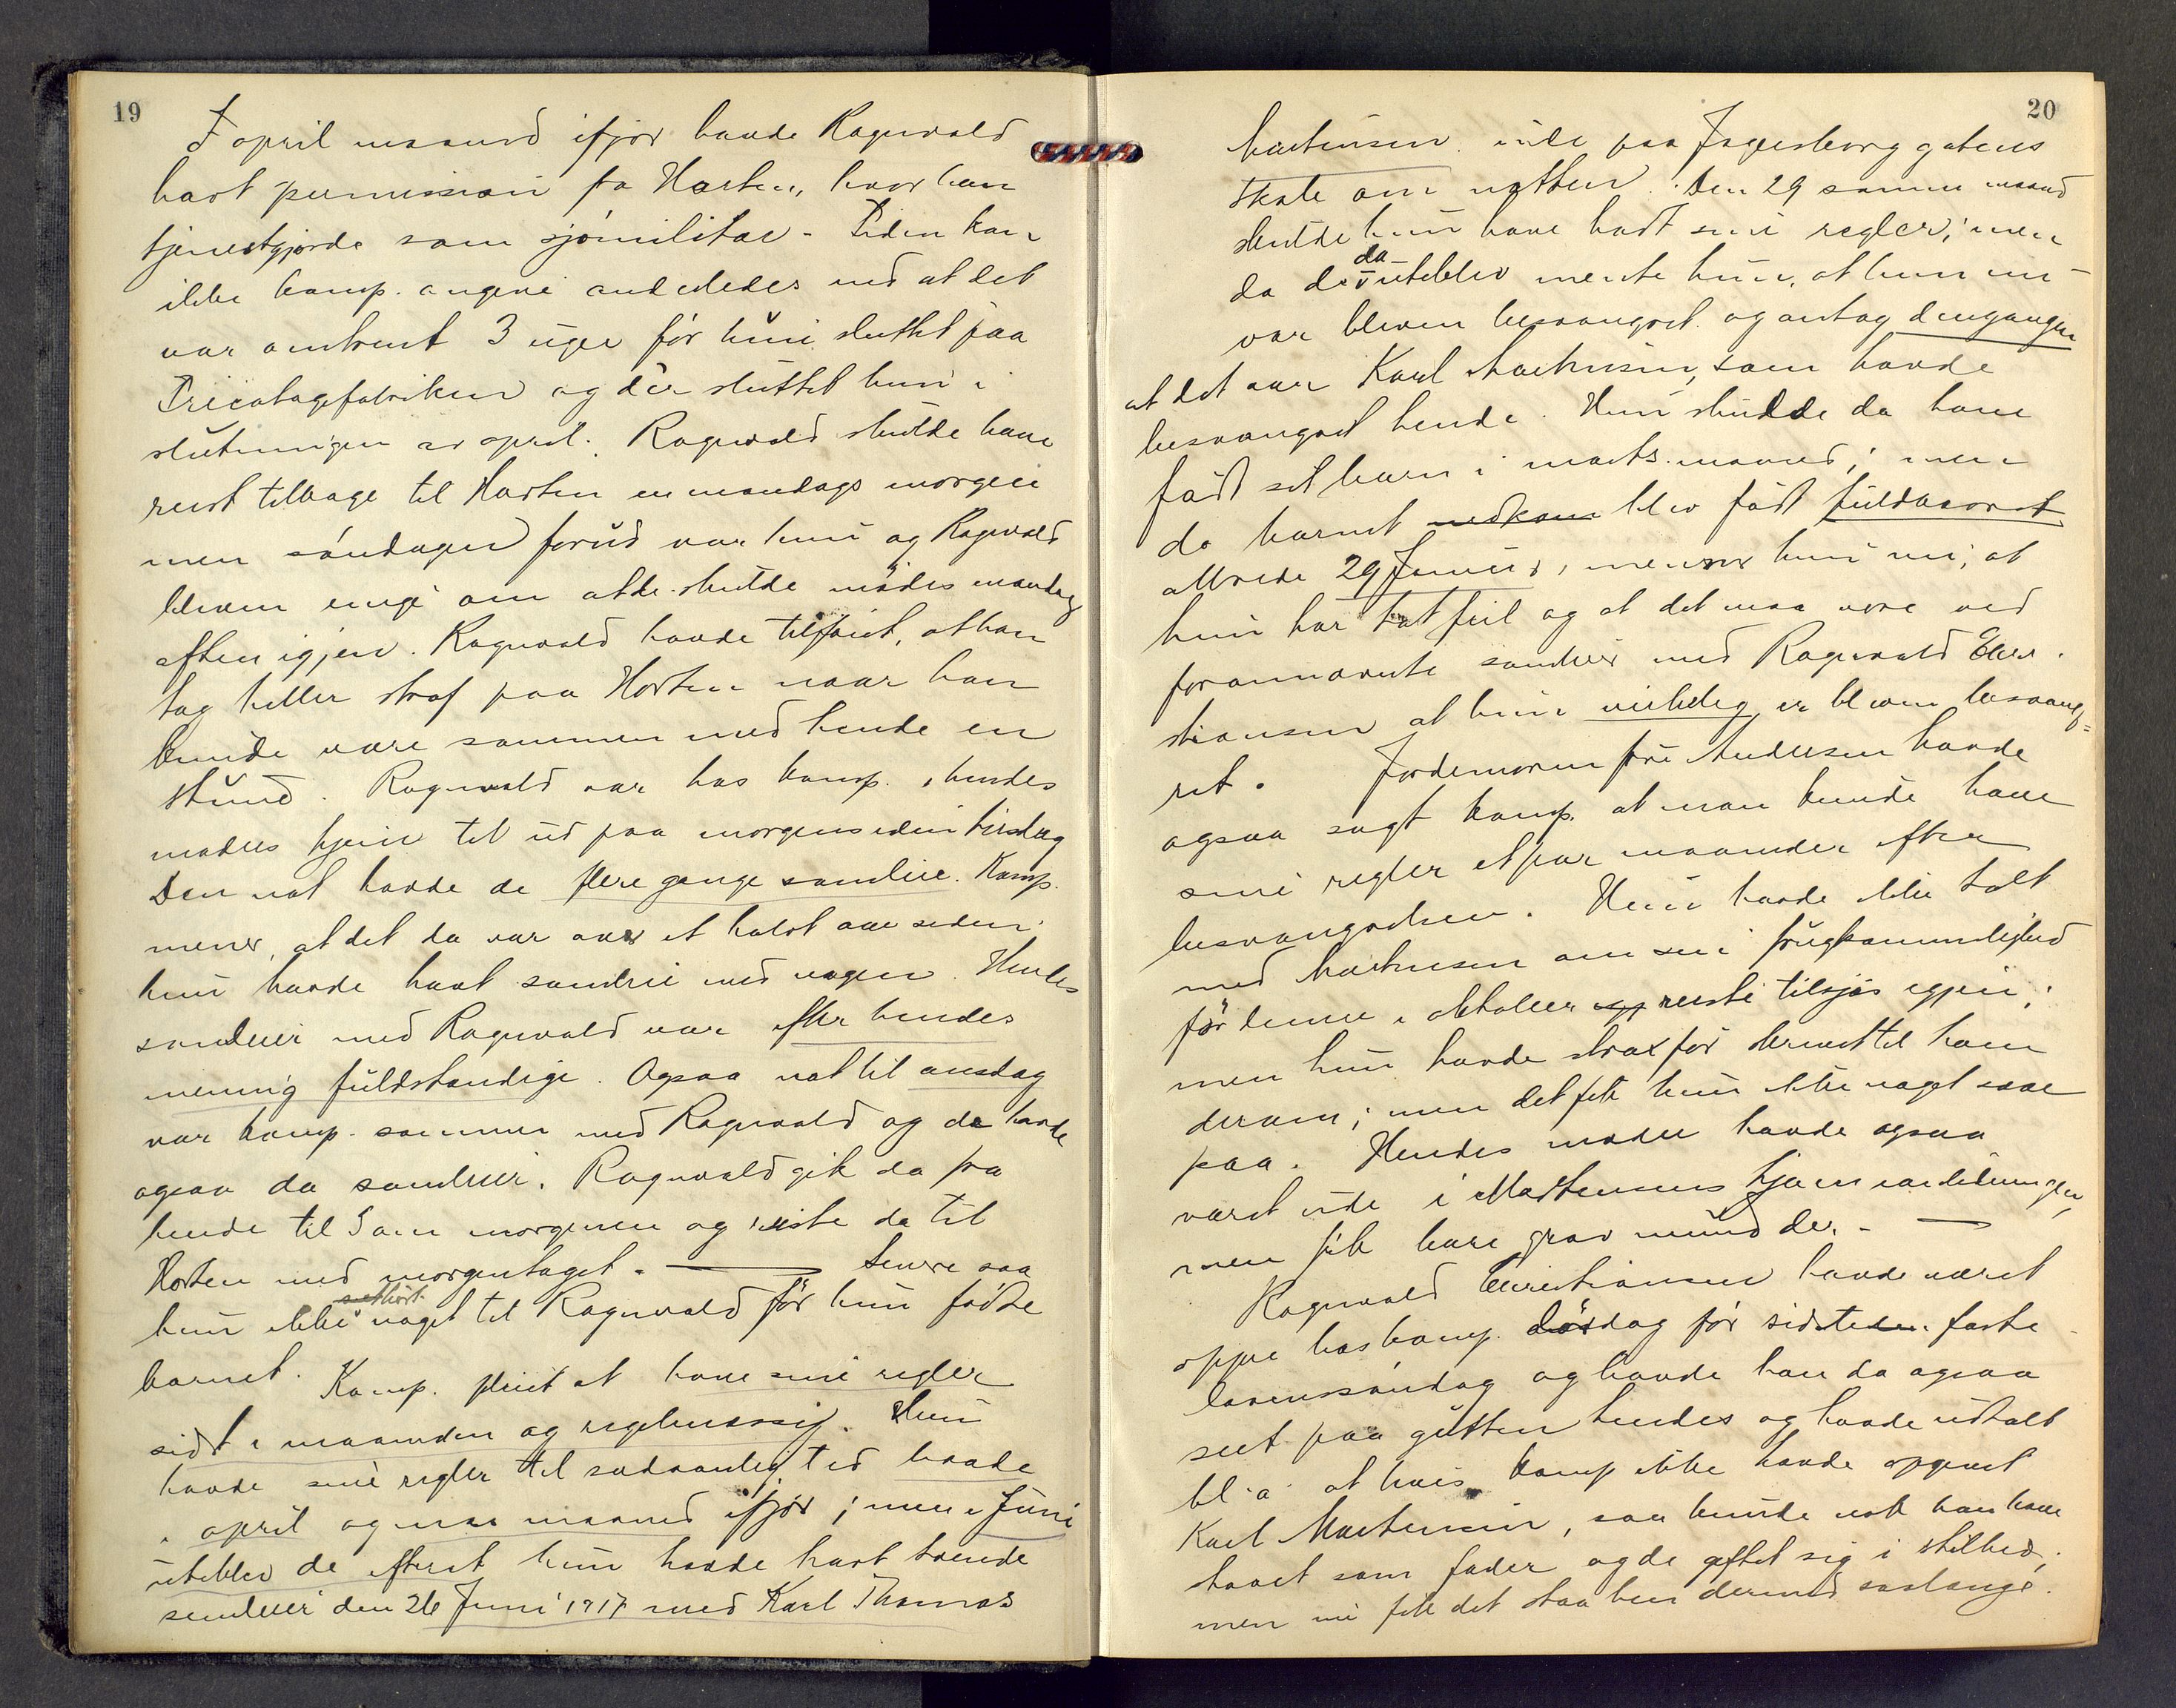 19
I april maaned ifjor havde Ragnvald
havt permission fra Horten, hvor han
tjenestgjorde som sjömilitær. Tiden kan
ikke komp. angive anderledes end at det
var omtrent 3 uger för hun sluttet paa
Tricotagefabriken og der sluttet hun i
slutningen av april. Ragnvald skulde have
reist tilbage til Horten en mandags morgen
men söndagen forud var hun og Ragnvald
bleven enige om at de skulde mödes mandag
aften igjen. Ragnvald havde tilföiet, at han
tog heller straf paa Horten naar han
kunde være sammen med hende en
stund. Ragnvald var hos komp. i hendes
moders hjem til ud paa morgensiden tirsdag
Den nat havde de flere gange samleie. Komp.
mener, at det da var over et halvt aar siden
hun havde havt samleie med nogen. Hendes
samleie med Ragnvald var efter hendes
mening fuldstændige. Ogsaa nat til onsdag
var komp. sammen med Ragnvald og de havde
ogsaa da samleie. Ragnvald gik da fra
hende til 5 om morgenen og reiste da til
Horten med morgentoget. — Senere saa
hun ikke noget til Ragnvald för hun födte
barnet. Komp. pleiet at have sine regler
sidst i maaneden og regelmæssig. Hun
havde sine regler til sædvanlig tid baade
i april og mai maaned ifjor; men i Juni
uteblev de efterat hun havde havt tvende
samleier den 26 Juni 1917 med Karl Thomas
20
Martinsen inde paa Jagersborg gatens
skole om natten. Den 29 samme maaned
skulde hun have havt sine regler; men
da de da uteblev mente hun, at hun nu
var bleven besvangret og antog dengangen
at det var Karl Martinsen, som havde
besvangret hende. Hun skulde da have
född sit barn i marts maaned; men
da barnet nedkom blev född fuldbaaret
allerede 29 Januar, mener hun nu, at
hun har tat feil og at det maa være ved
forannævnte samleier med Ragnvald Chri-
stiansen at hun virkelig er bleven besvang=
ret. Jordemoren fru Andersen havde
ogsaa sagt komp. at man kunde have
sine regler et par maaneder efter
besvangrelsen. Hun havde ikke talt
med Martinsen om sin frugtsommelighed
för denne i oktober reiste tilsjös igjen;
men hun havde strax för skrevet til ham
derom; men det fik hun ikke noget svar
paa. Hendes moder havde ogsaa
været ude i Martinsens hjem i anledningen,
men fik bare grov mund der. —
Ragnvald Christiansen havde været
oppe hos komp. lördag för sidste faste
lavenssöndag og havde han da ogsaa
seet paa gutten hendes og havde udtalt
bl. a. at hvis komp ikke havde opgivet
Karl Martinsen, saa kunde nok han have
staaet som fader og de giftet sig i stilhed;
men nu fik det staa hen dermed saalænge.